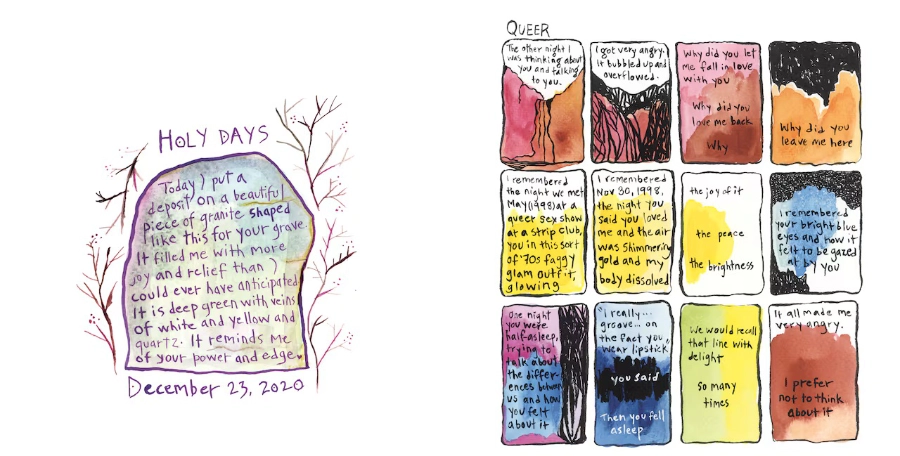 HOLY DAYS
Today I put a
deposit on a beautiful
piece of granite shaped
like this for your grave.
It filled me with more
joy and relief than I
could ever have anticipated.
It is deep green with veins
of white and yellow and
quartz. It reminds me
of your power and edge.
December 23, 2020
QUEER
The other night I
was thinking about
you and talking
to you.
I got very angry.
It bubbled up and
overflowed.
Why did you let
me fall in love
with you
Why did you
love me back
Why
Why did you
leave me here
I remembered
the night we met
May (1998) at a
queer sex show
at a strip club,
you in this sort
of '70s faggy
glam outfit,
glowing
I remembered
Nov 30, 1998,
the night you
said you loved
me and the air
was shimmering
gold and my
body dissolved
the joy of it
the peace
the brightness
I remembered
your bright blue
eyes and how it
felt to be gazed
at by you
One night
you were
half-asleep,
trying to
talk about
the differ-
ences between
us and how
you felt
about it
"I really...
groove... on
the fact you
wear lipstick,"
you said
Then you fell
asleep
We would recall
that line with
delight
so many
times
It all made me
very angry.
I prefer
not to think
about it